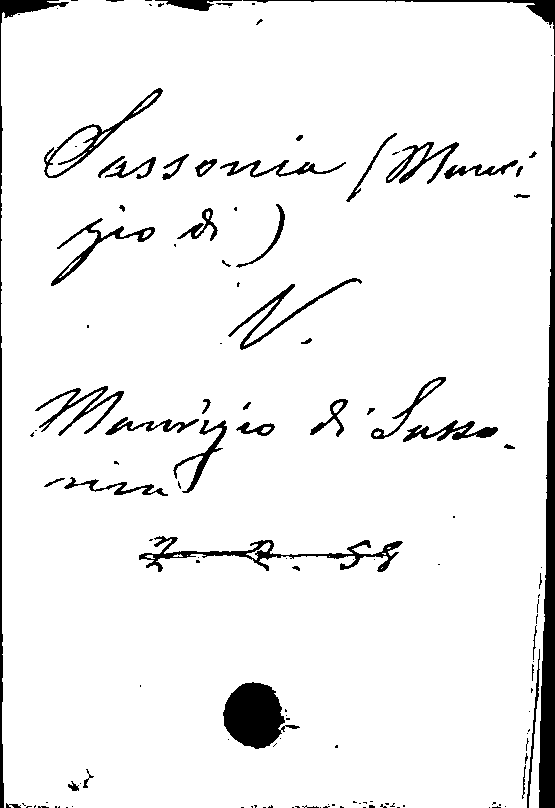 Sassonia (Mauri-
zio di)
V.
Maurizio di Sasso-
nia
Z. Z. 58